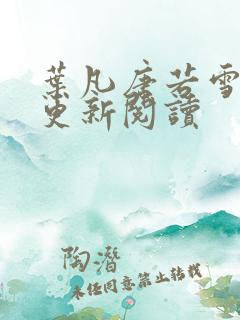 葉凡唐若雪
更新閱讀
陶潛
未经同意禁止转载